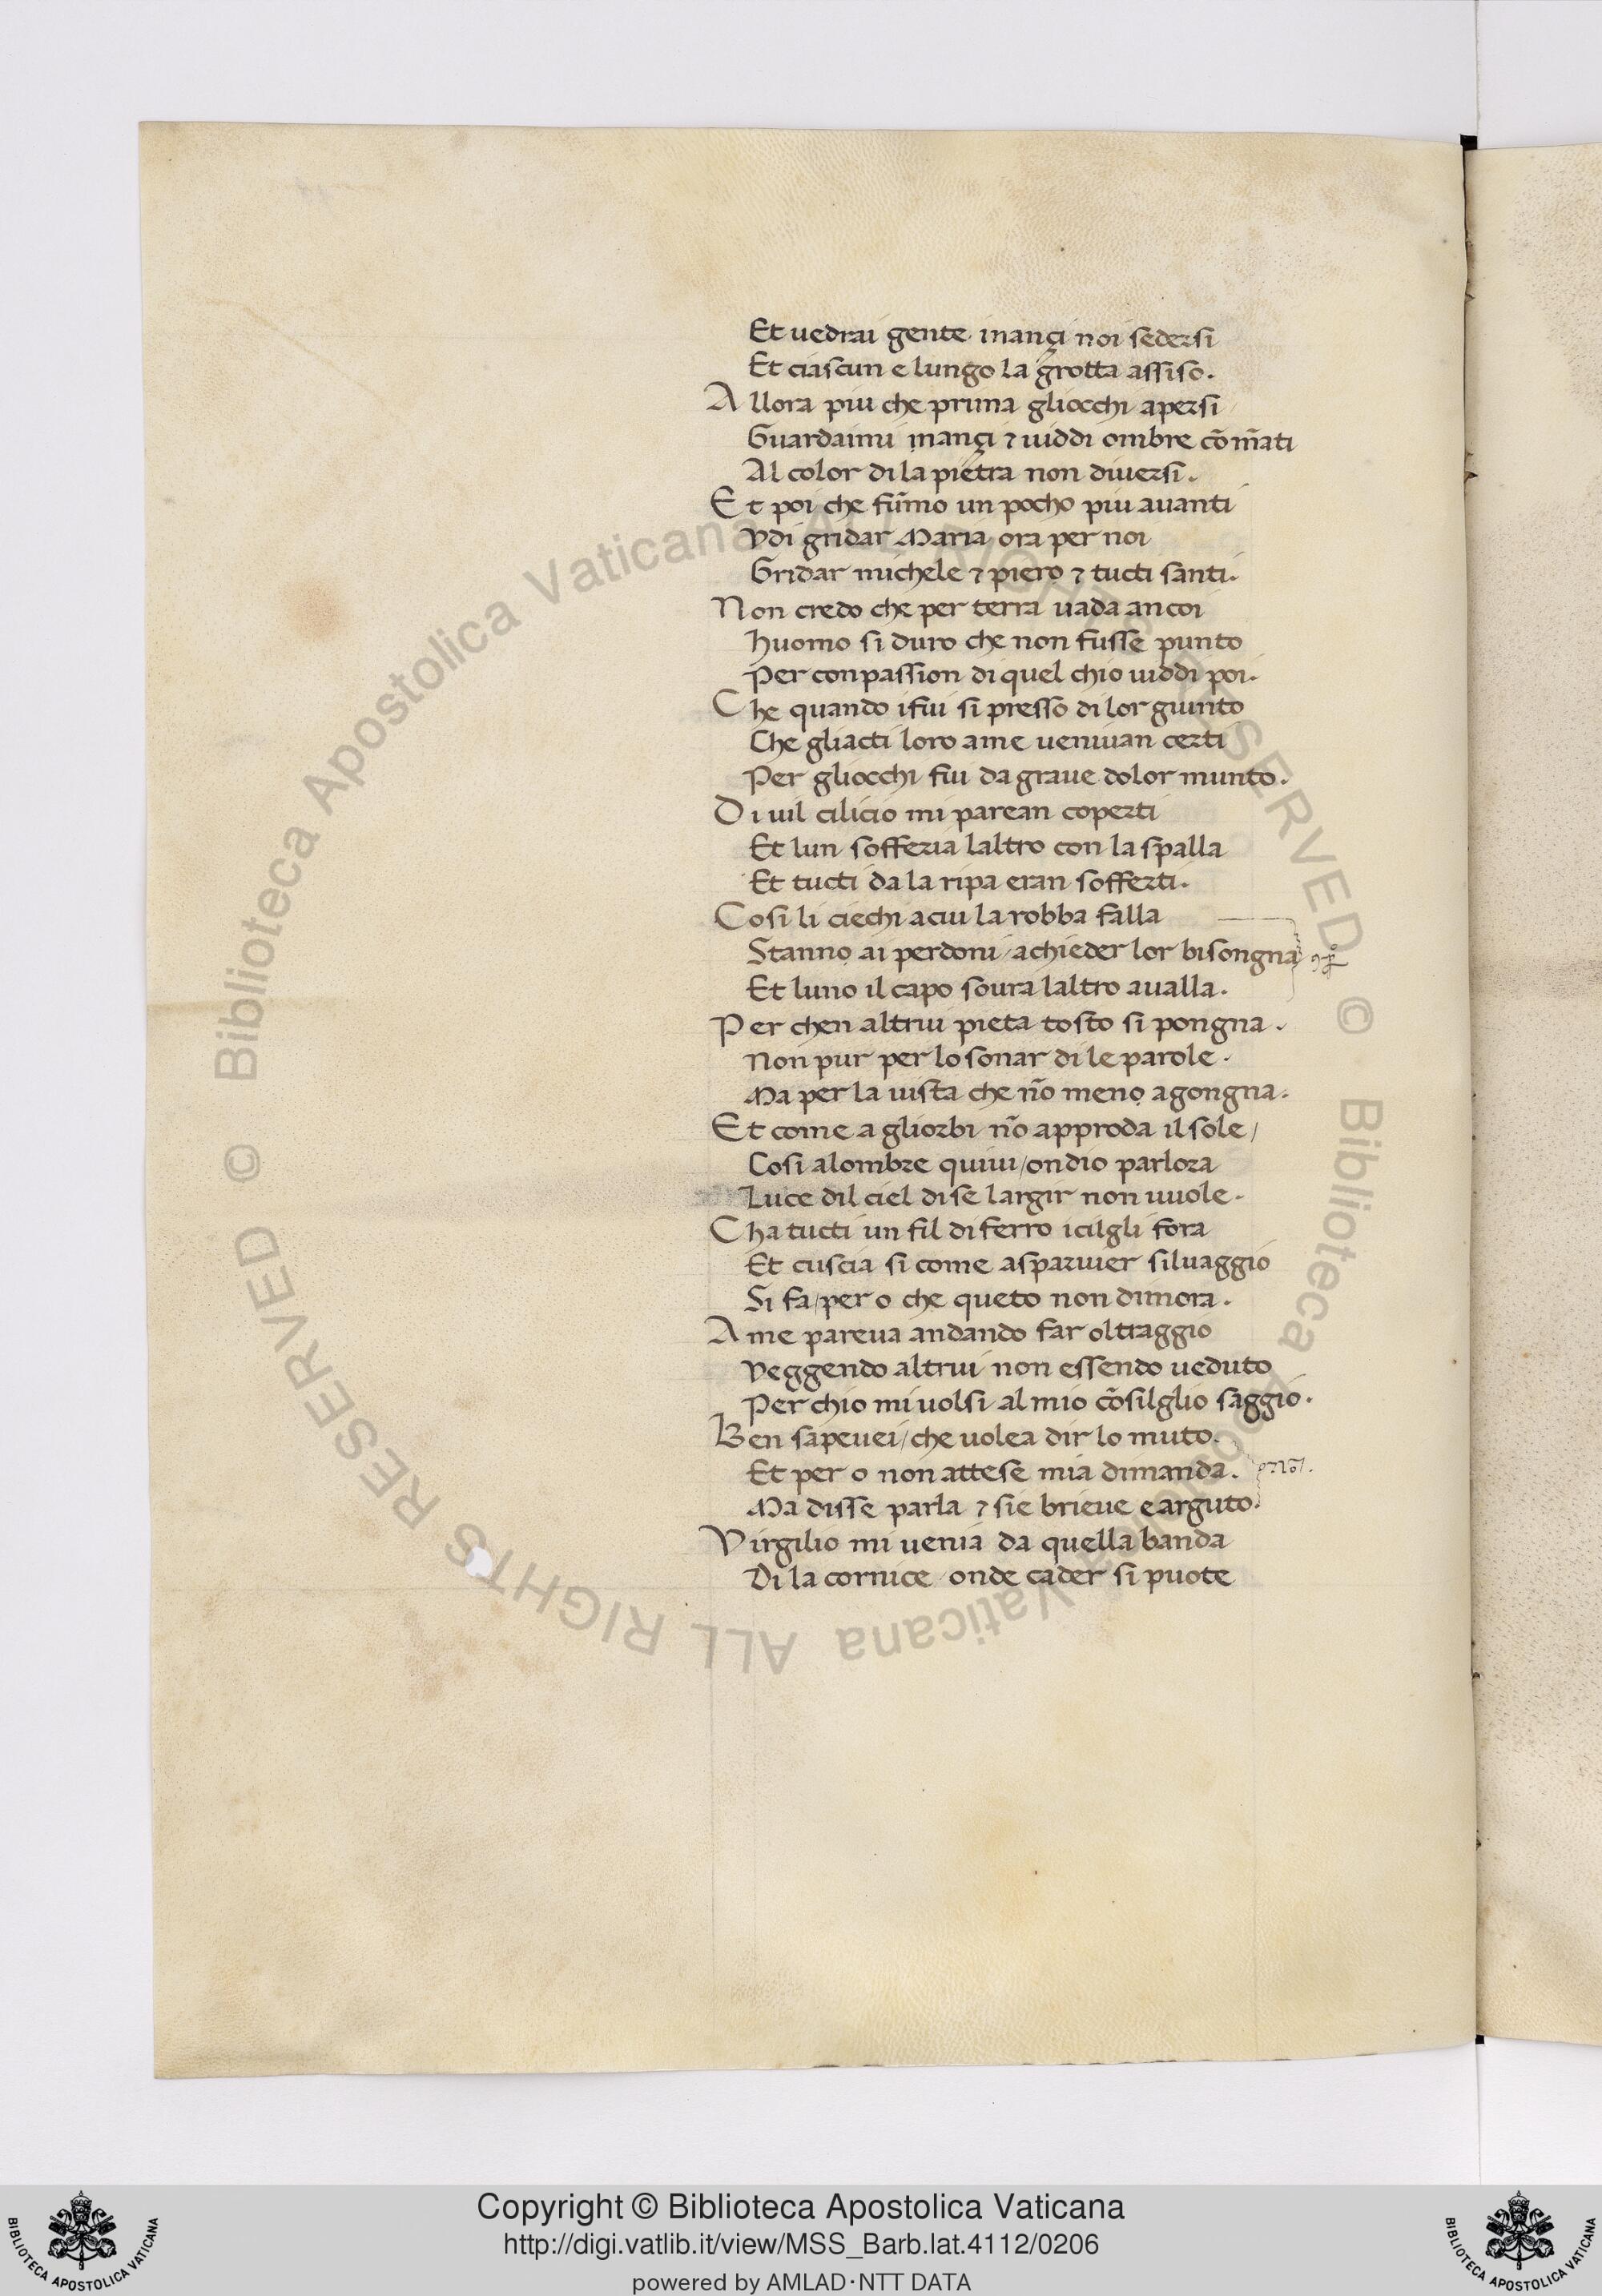 Et uedrai gente inançi noi sedersi
Et ciascun e lungo la grotta assiso.
Allora piu che prima gliocchi apersi
Guardaimi inançi ⁊ uiddi ombre cõ m̃ati
Al color di la pietra non diuersi.
Et poi che fum̃o un pocho piu auanti
Vdi gridar Maria ora per noi
Gridar michele ⁊ piero ⁊ tucti santi.
Non credo che per terra uada ancoi
huomo si duro che non fusse punto
Per conpassion di quel chio uiddi poi.
Che quando ifui si presso di lor giunto
Che gliacti loro ame ueniuan certi
Per gliocchi fui da graue dolor munto.
Di uil cilicio mi parean coperti
Et lun sofferia laltro con la spalla
Et tucti da la ripa eran sofferti.
Cosi li ciechi acui la robba falla
Stanno ai perdoni / achieder lor bisongna
Et luno il capo soura laltro aualla.
Per chen altrui pieta tosto si pongna.
Non pur per lo sonar di le parole.
Ma per la uista che nõ meno agongna.
Et come a gliorbi nõ approda il sole /
Cosi alombre quiui / ondio parlora
Luce dil ciel di se largir non uuole.
Cha tucti un fil di ferro icilgli fora
Et cuscia si come asparuier siluaggio
Si fa / per o che queto non dimora.
A me pareua andando far oltraggio
Veggendo altrui non essendo ueduto
Per chio mi uolsi al mio cõsilglio saggio.
Ben sapeuei / che uolea dir lo muto.
Et per o non attese mia dimanda.
Ma disse parla ⁊ sie brieue e arguto.
Virgilio mi uenia da quella banda
Di la cornice onde cader si puote
© Biblioteca Apostolica Vaticana ALL RIGHTS RESERVED © Biblioteca Apostolica Vaticana ALL RIGHTS RESERVED
Copyright © Biblioteca Apostolica Vaticana
http://digi.vatlib.it/view/MSS_Barb.lat.4112/0206
powered by AMLAD·NTT DATA
BIBLIOTECA APOSTOLICA VATICANA
BIBLIOTECA APOSTOLICA VATICANA